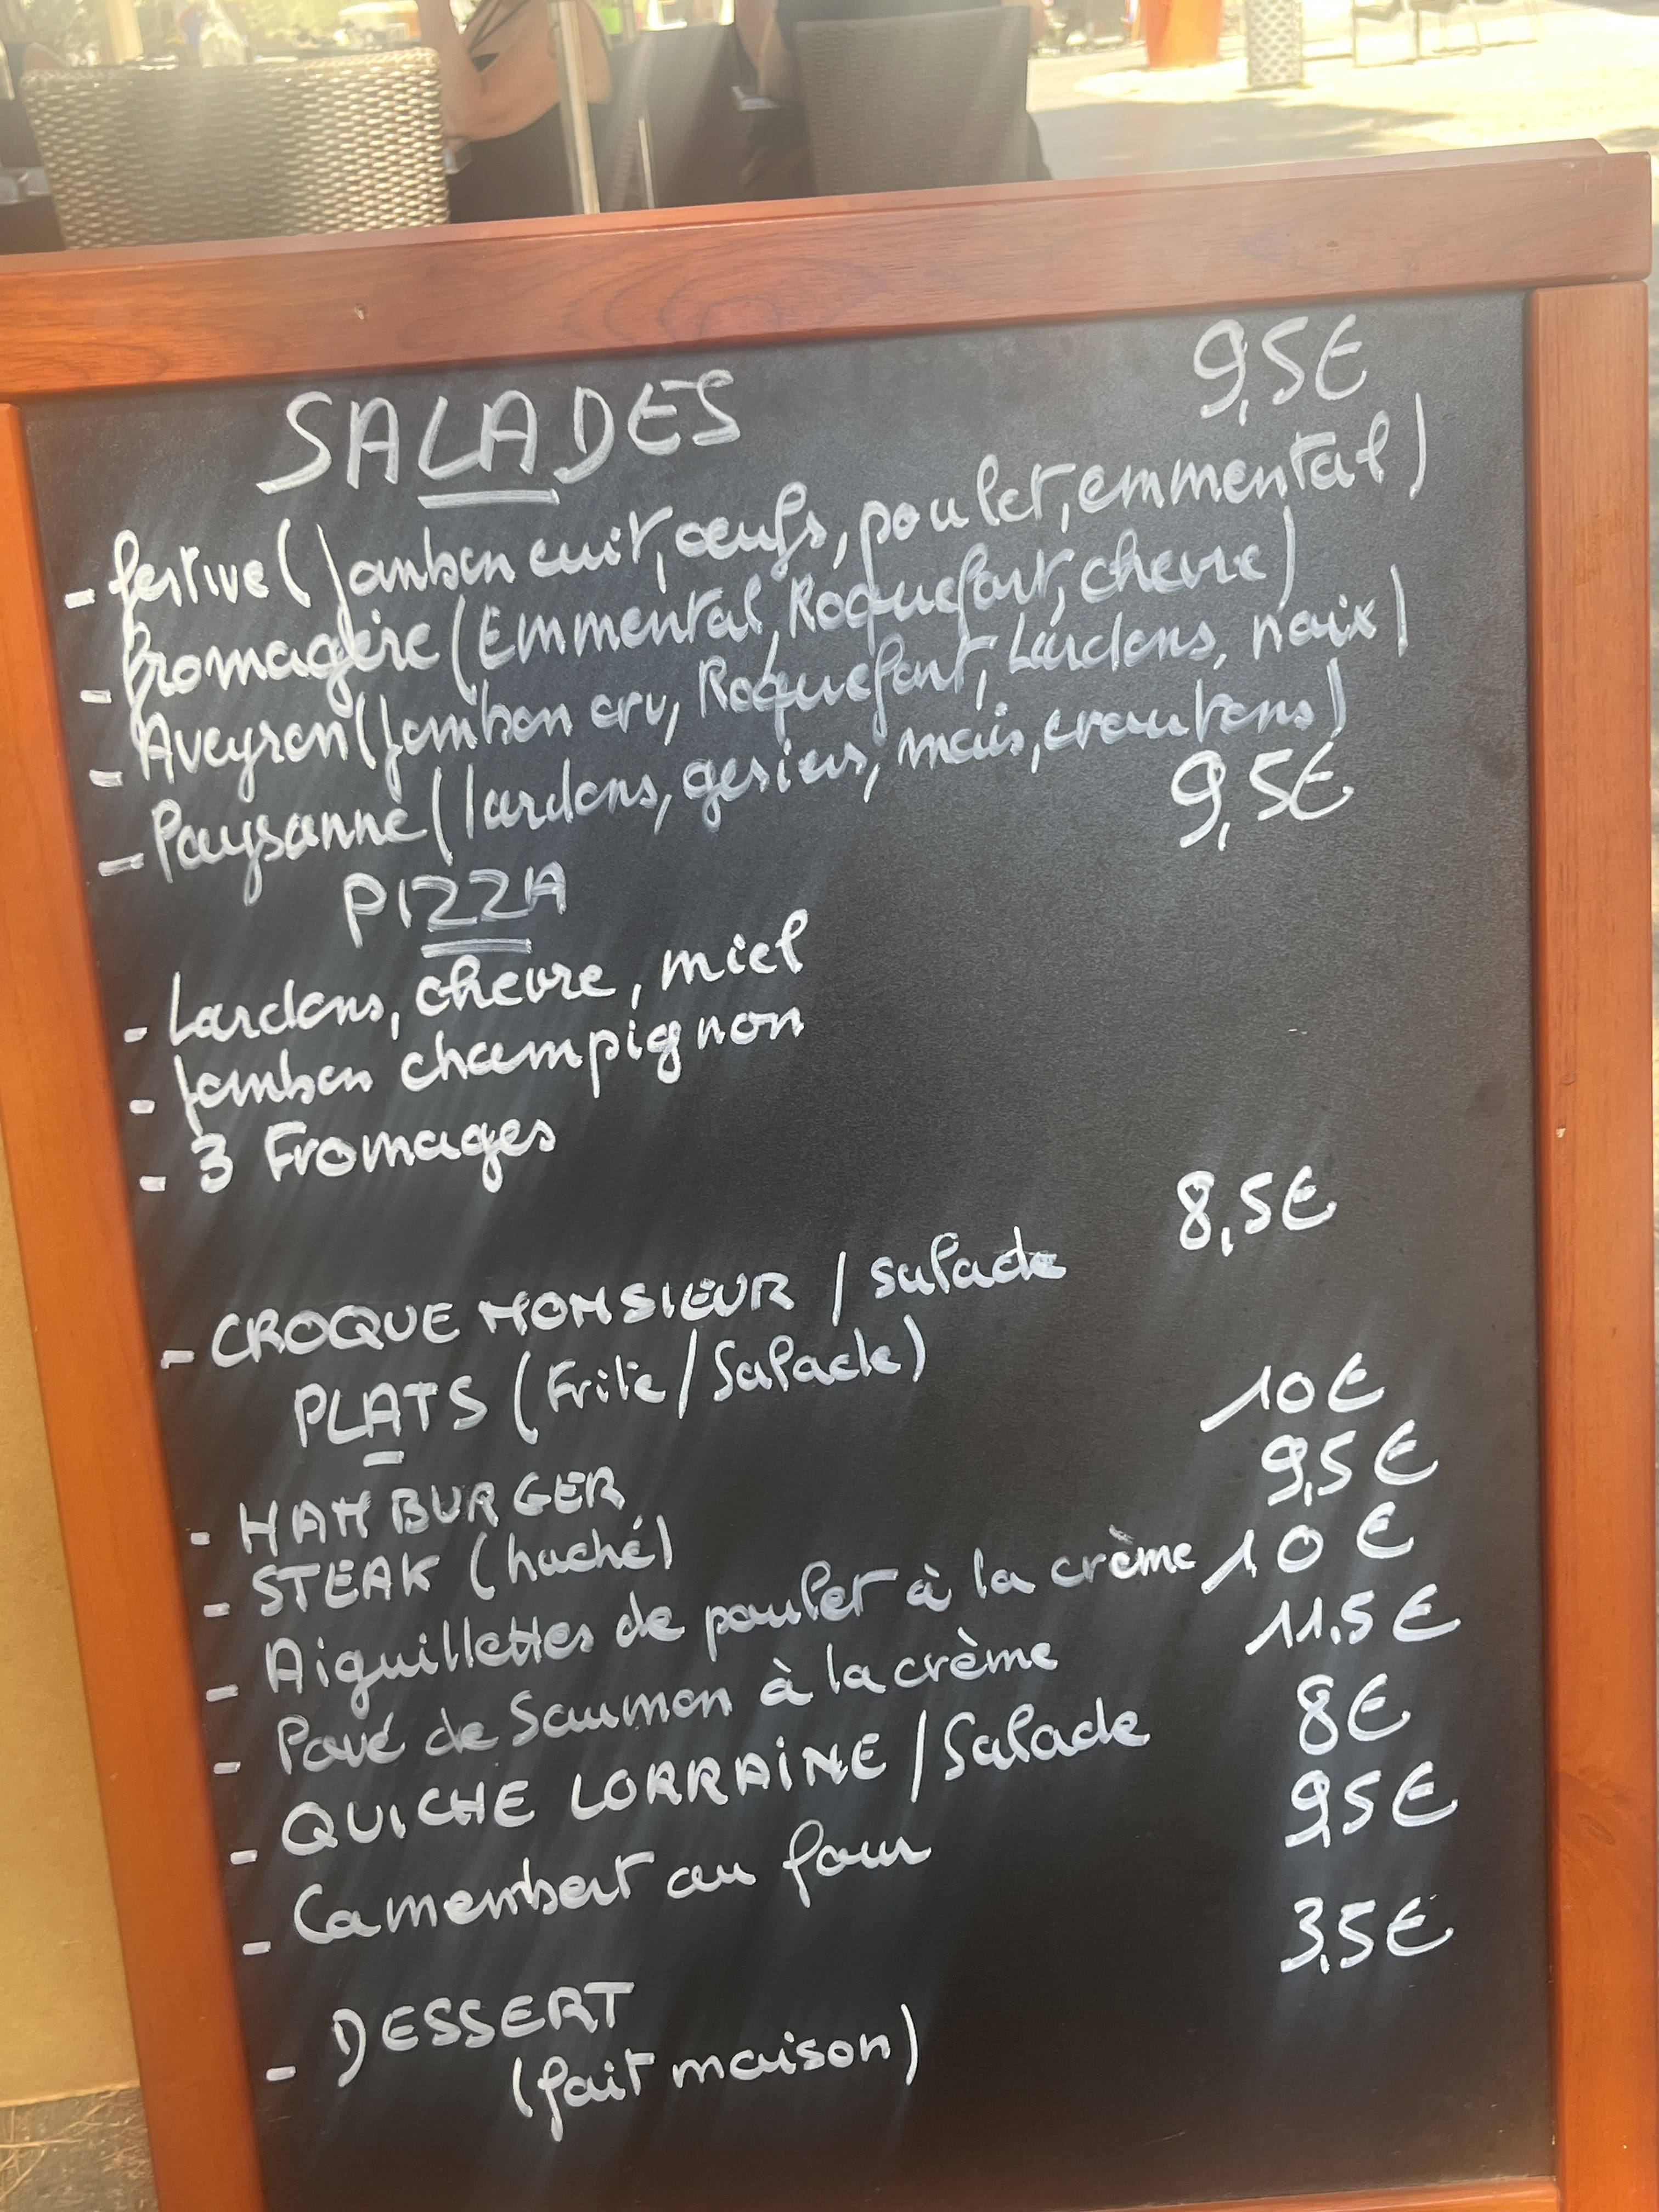 SALADES 9,5€
- festive (Jambon cuit, œufs, poulet, emmental)
- fromagère (Emmental, Roquefort, chevre)
- Aveyron (Jambon cru, Roquefort, Lardons, noix)
- Paysanne (lardons, gesiers, mais, croutons)
PIZZA 9,5€
- Lardons, chevre, miel
- Jambon champignon
- 3 Fromages
- CROQUE MONSIEUR / salade 8,5€
PLATS (Frite/Salade)
- HAMBURGER 10€
- STEAK (haché) 9,5€
- Aiguillettes de poulet à la crème 10€
- Pavé de Saumon à la crème 11,5€
- QUICHE LORRAINE / Salade 8€
- Camembert au four 9,5€
- DESSERT 3,5€
(fait maison)